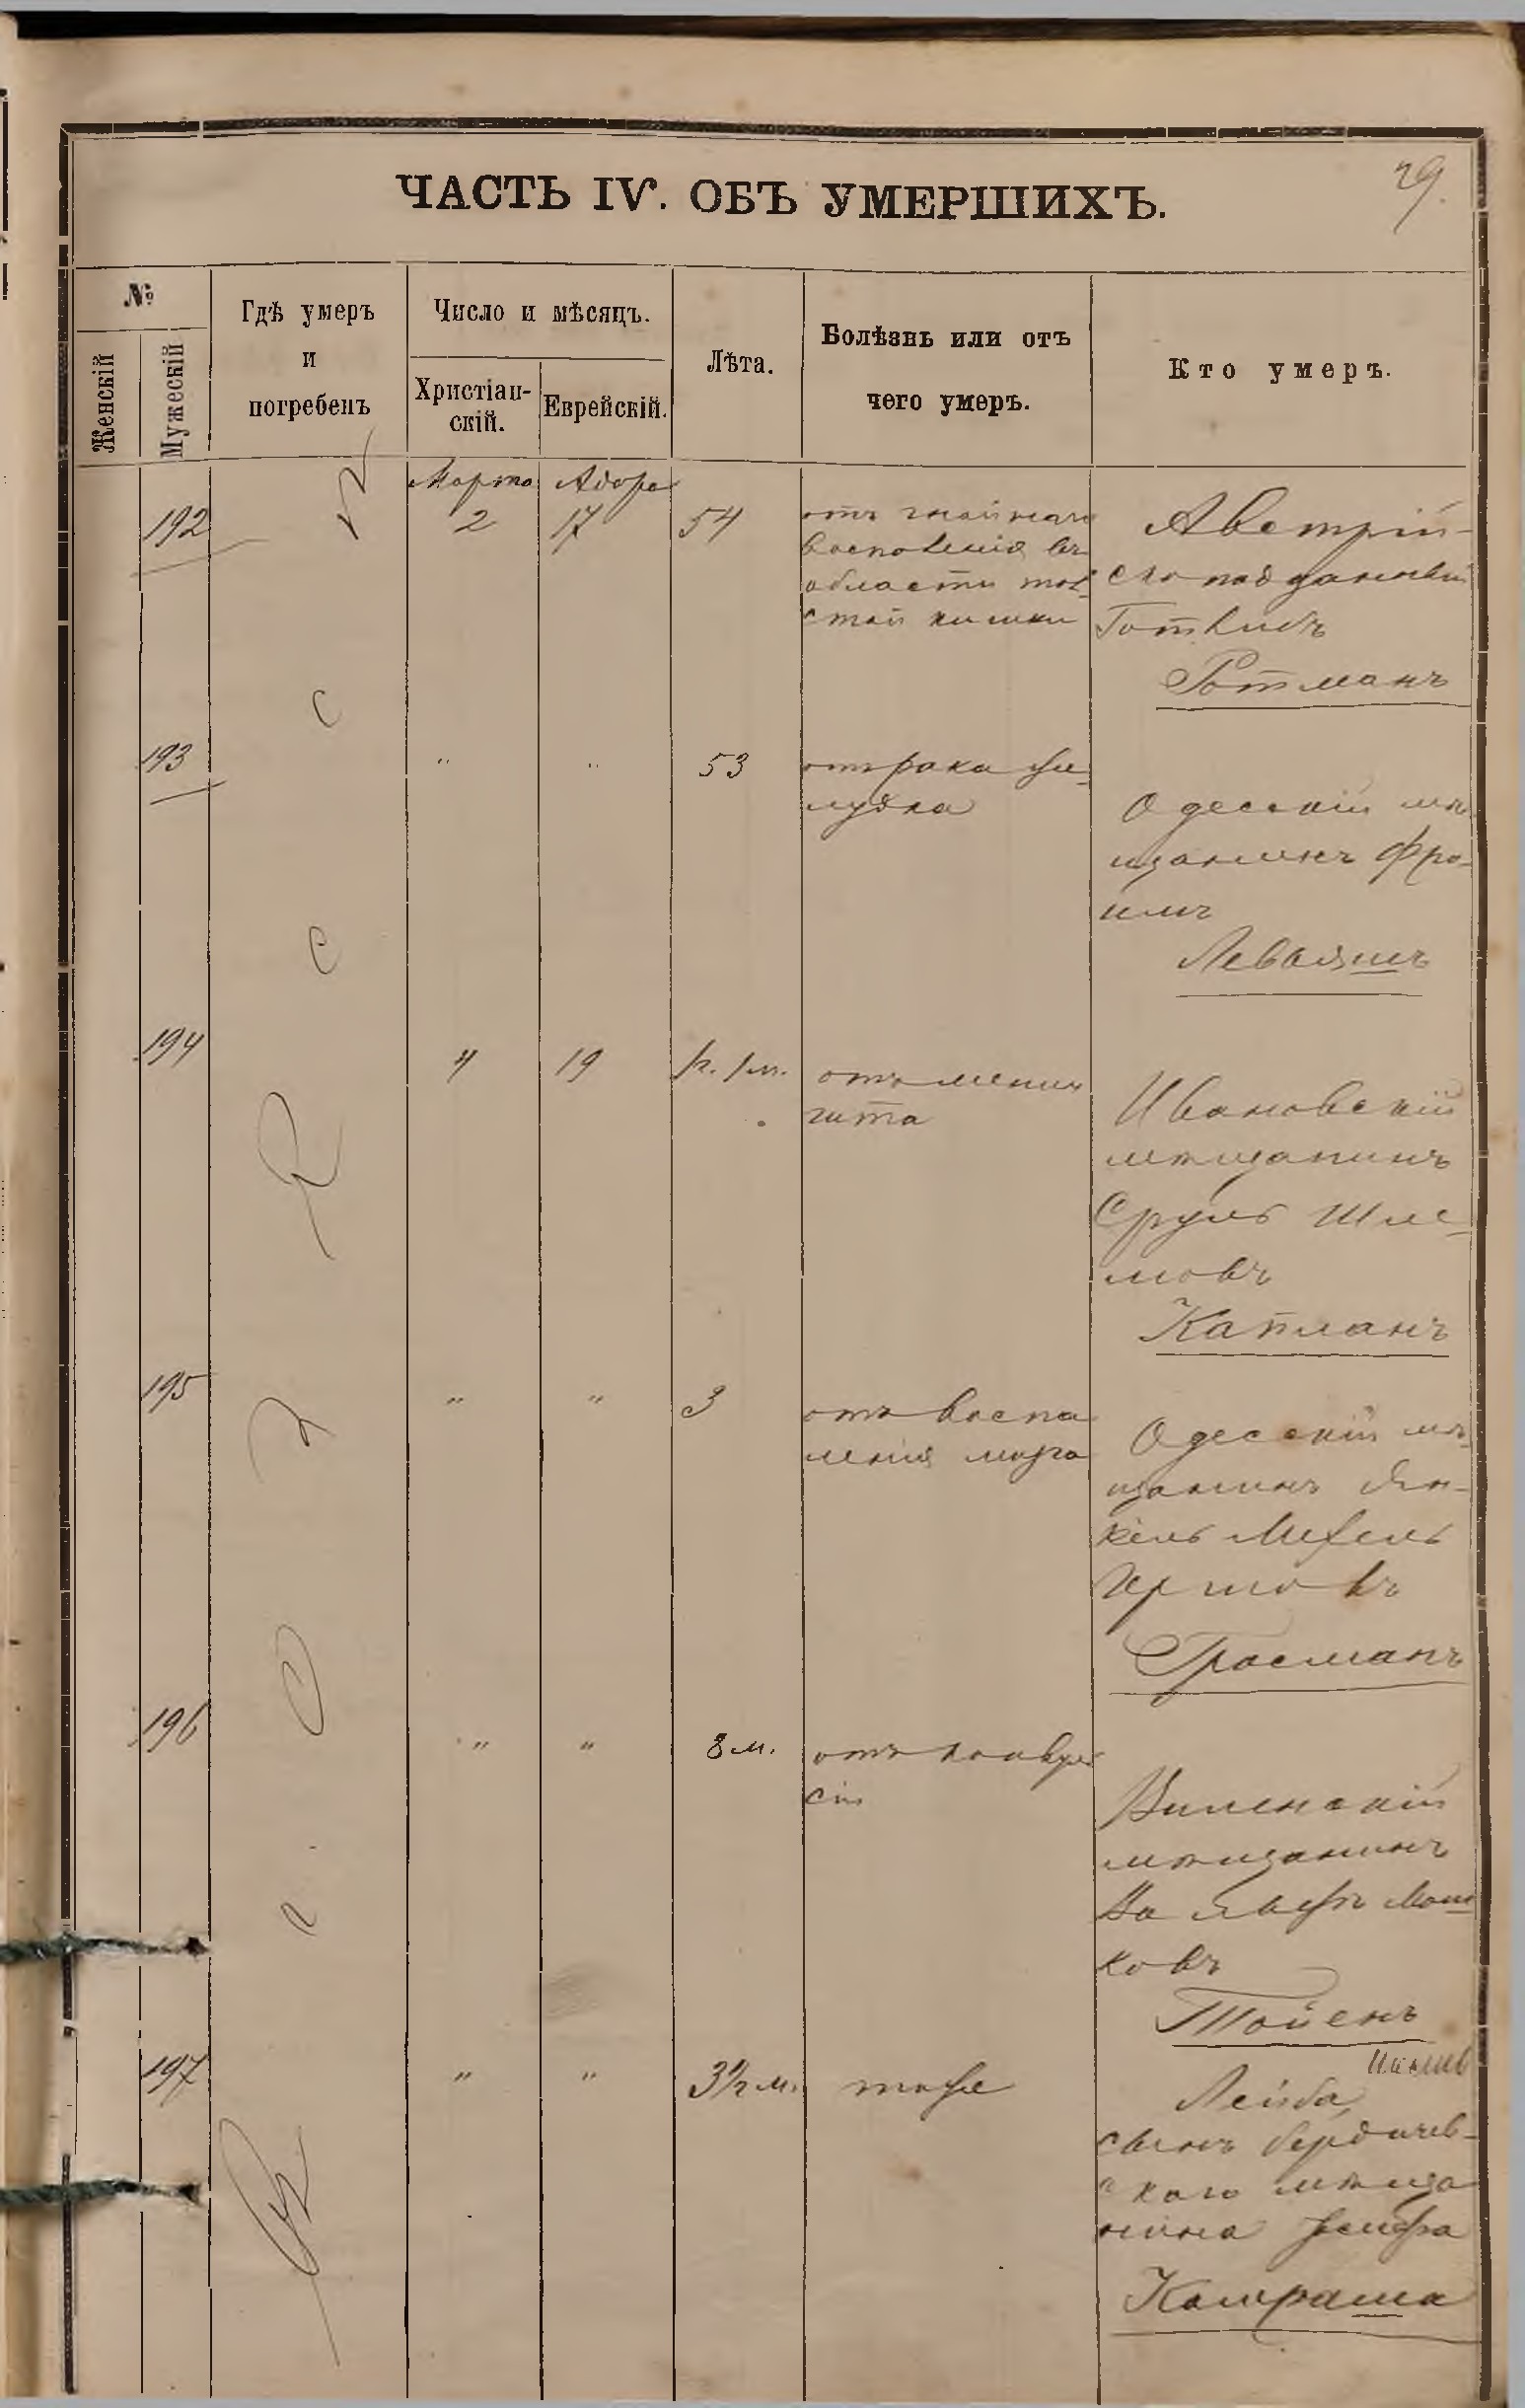 29.
ЧАСТЬ IV. ОБЪ УМЕРШИХЪ.
№
Женскій
Мужескій
Гдѣ умеръ
и
погребенъ
Число и мѣсяцъ.
Христіан-
скій.
Еврейскій.
Лѣта.
Болѣзнь или отъ
чего умеръ.
Кто умеръ.
Марта Адора
192 2 17 54
отъ гнойнаго
воспаленія въ
области тол-
стой кишки
Австрій-
ско подданный
Готлибъ
Ротманъ
193 " " 53
отъ рака же-
лудка
Одесскій мѣ-
щанинъ Фро-
имъ
194 4 19 1 г. 1 м.
отъ менин
гита
Ивановскій
мѣщанинъ
Сруль Шле-
мовъ
Капланъ
195 " " 3
отъ воспа
ленія мозга
Одесскій мѣ-
щанинъ Ян-
кель Мехель
Гершовъ
Гросманъ
196 " " 8 м.
отъ конвуль
сіи
Виленскій
мѣщанинъ
Мош
ковъ
197 " " 3½ м.
тоже
Лейба
сынъ бердичев-
скаго мѣща
нина